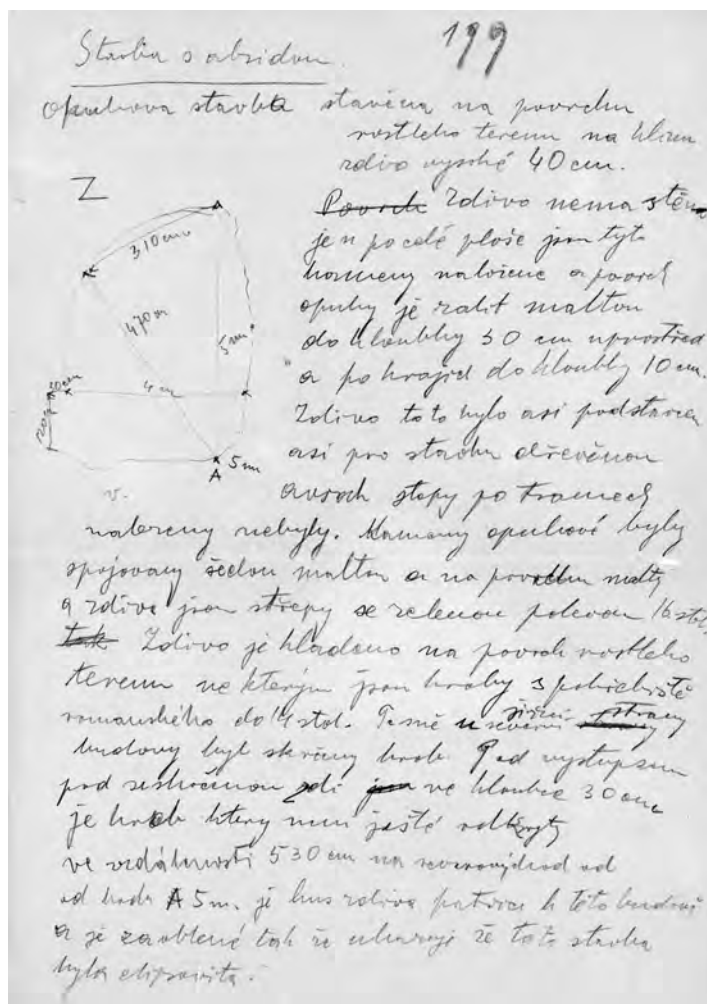 199
Stavba s absidou.
Opuková stavba stavěna na povrchu
rostleho terenu na hlinu
zdivo vysoké 40 cm.
Z
Povrch Zdivo nema stěn
je n po celé ploše jsou tyto
kameny naložene a povrch
opuky je zalit maltou
do hloubky 30 cm uprostřed
a po krajich do hloubky 10 cm.
Zdivo toto bylo asi podstavcem
asi pro stavbu dřevěnou
stopy po tramech
310 cm
470
5m
4 m
A 5m
v.
nalezeny nebyly. Kameny opukové byly
spojovany šedou maltou a na povrchu malty
a zdiva jsou střepy se zelenou polevou 16 stol.
tak Zdivo je kladeno na povrch rostleho
terenu ve kterým jsou hroby s pohřebiště
romanského do 14 stol. Tesně u severní jižní strany
budovy byl skrčeny hrob. Pod vystupem
pod zdi jsou ve hloubce 30 cm
je hrob ktery neni ještě odkryty
ve vzdálenosti 530 cm na severovýchod od
od bodu A 5m. je kus zdiva patrici k této budově
a je zaoblené tak že ukazuje že tato stavba
byla elipsovita.